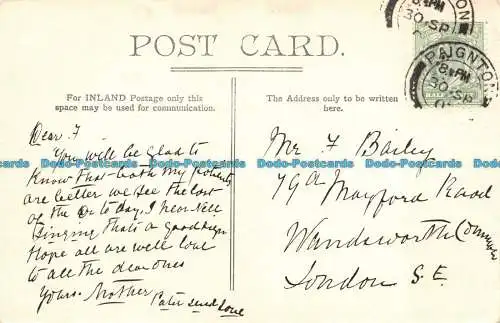 POST CARD.
For INLAND Postage only this
space may be used for communication.
The Address only to be written
here.
PAIGNTON
8. PM
30. SP
Dear F
You will be glad to
know that both my patients
are better we see the last
of the Dr to day, I hear Nell
singing thats a good sign
Hope all are well love
to all the dear ones
Yours. Mother
Pater send love
Mr F Bailey
79a Mayford Road
Wandsworth Common
London S. E.
Bdo-Postcards Bdo-Postcards Bdo-Postcards Bdo-Postcards